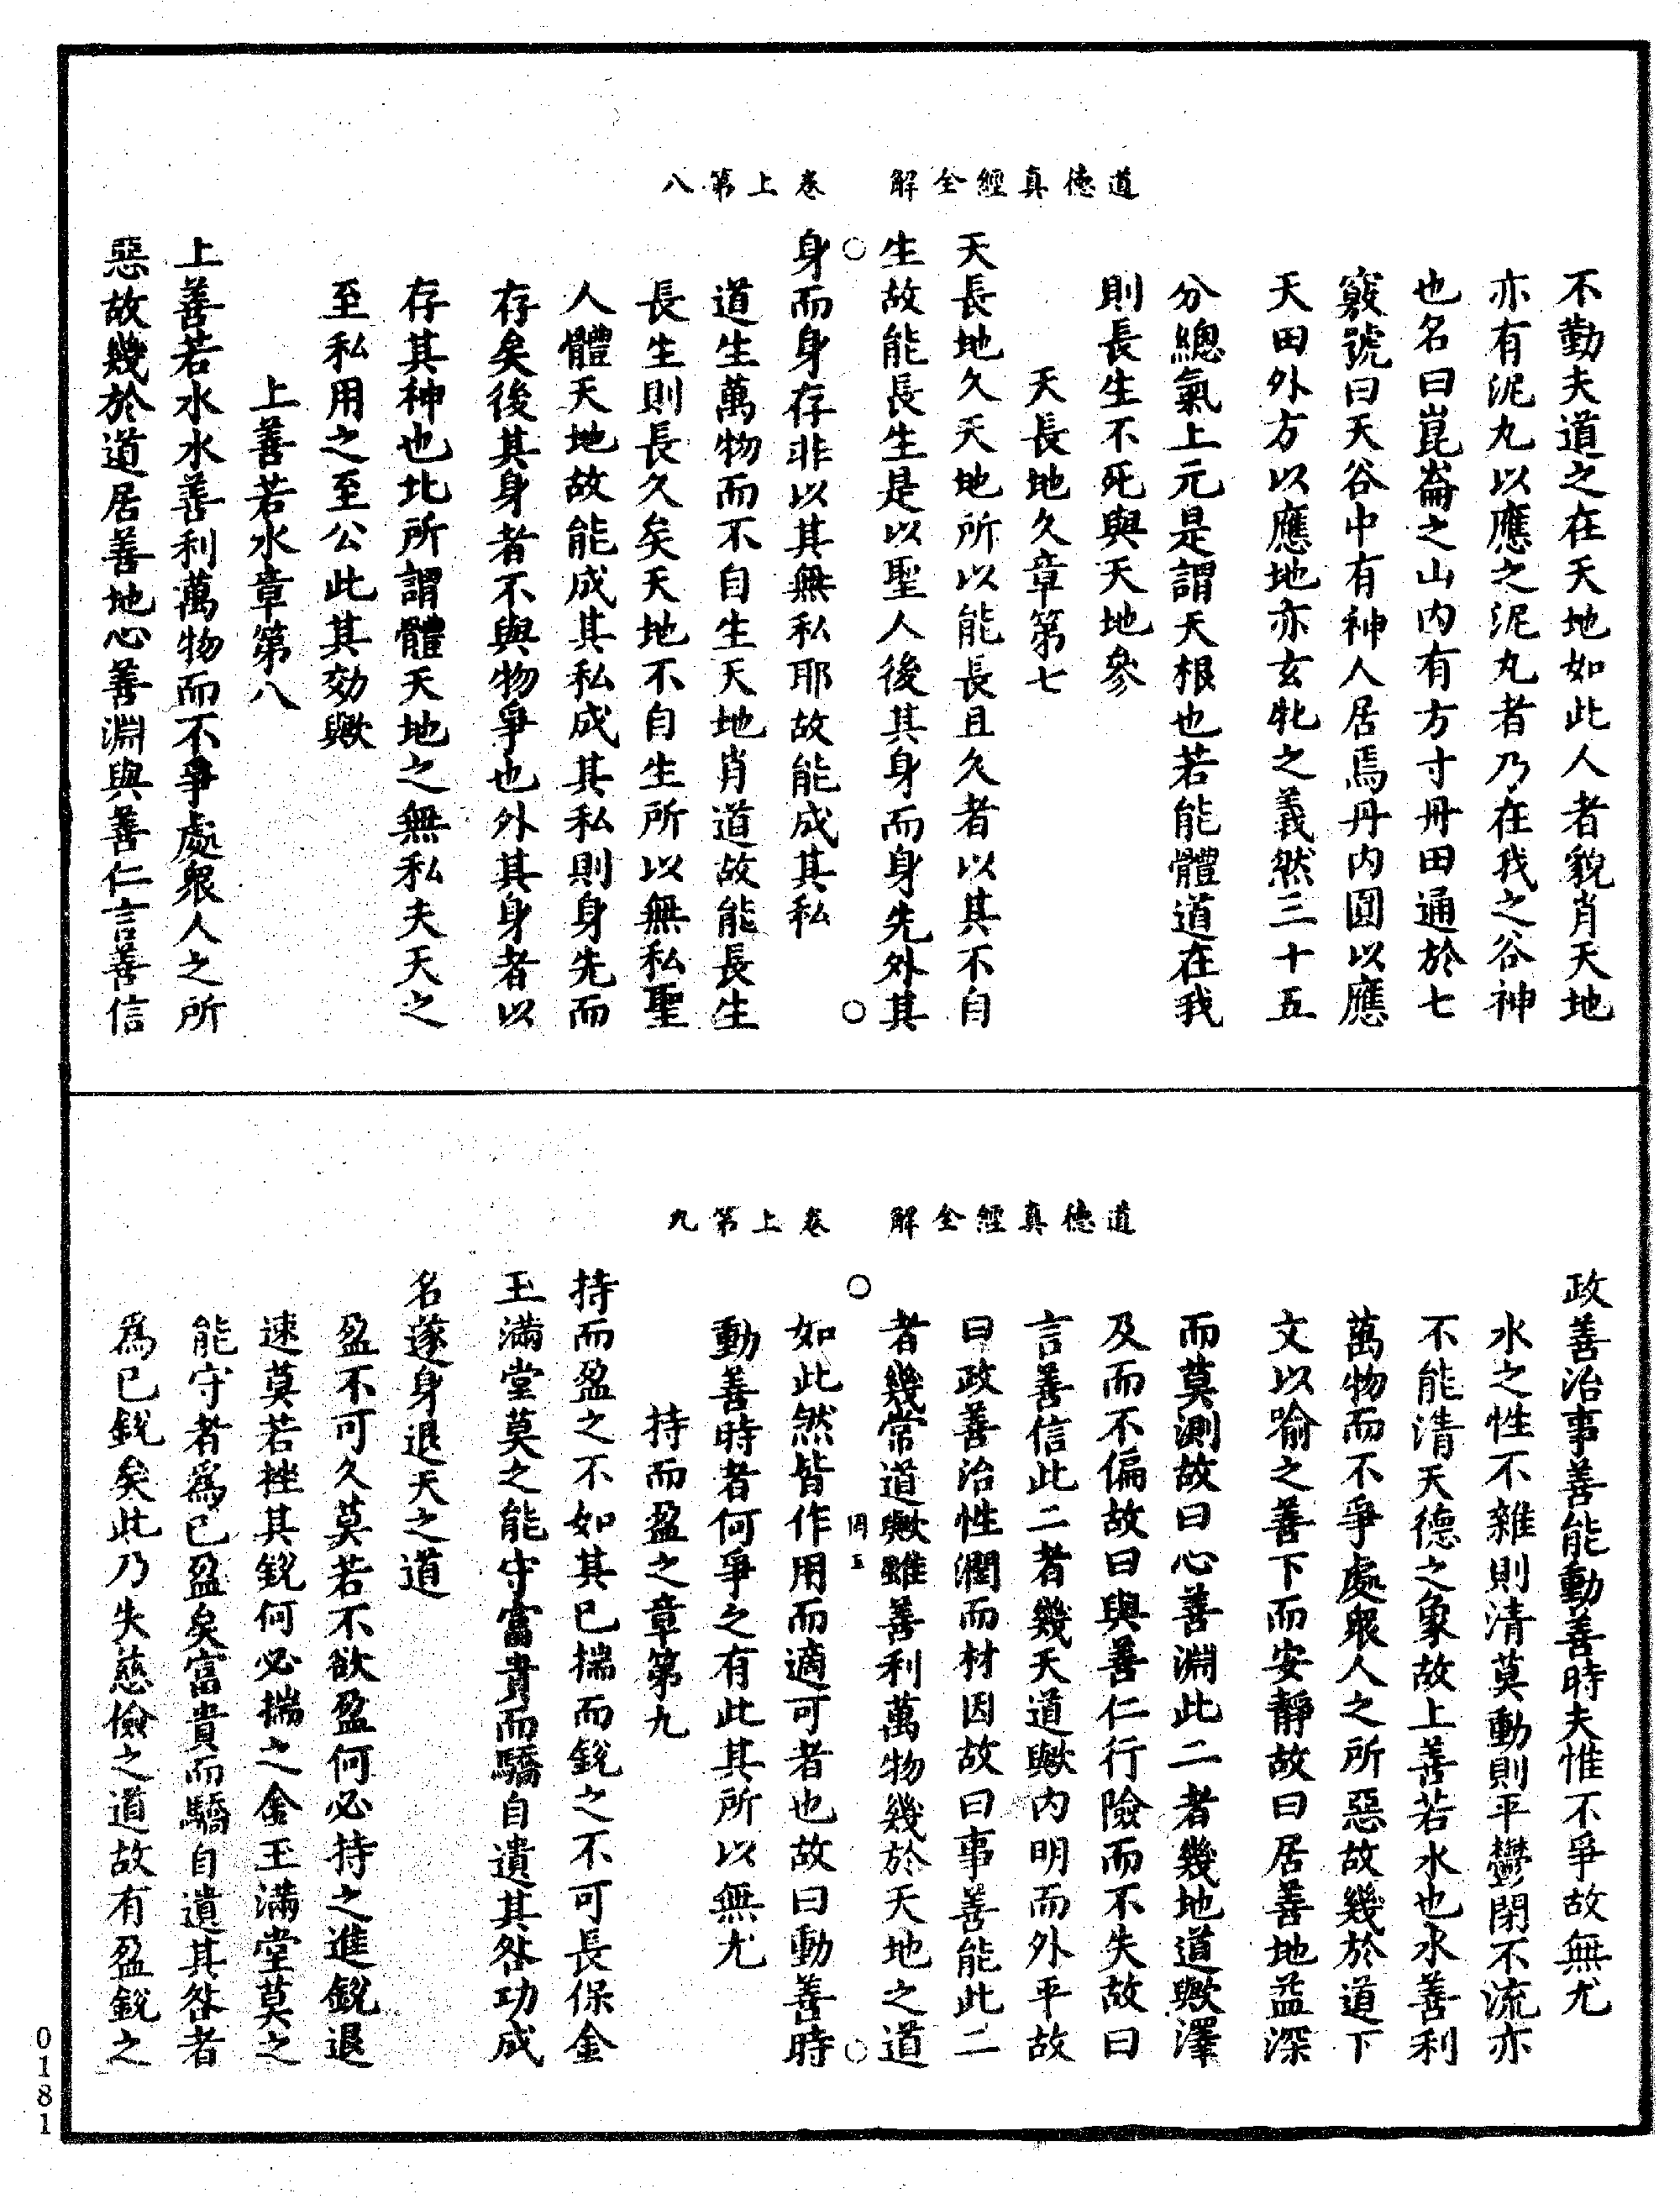 道德真經全解　卷上第八
不勤夫道之在天地如此人者貌肖天地
亦有泥丸以應之泥丸者乃在我之谷神
也名曰崑崙之山内有方寸丹田通於七
竅號曰天谷中有神人居焉丹内圓以應
天田外方以應地亦玄牝之義然三十五
分總氣上元是謂天根也若能體道在我
則長生不死與天地參
天長地久章第七
天長地久天地所以能長且久者以其不自
生故能長生是以聖人後其身而身先外其
身而身存非以其無私耶故能成其私
道生萬物而不自生天地肖道故能長生
長生則長久矣天地不自生所以無私聖
人體天地故能成其私成其私則身先而
存矣後其身者不與物爭也外其身者以
存其神也此所謂體天地之無私夫天之
至私用之至公此其効歟
上善若水章第八
上善若水水善利萬物而不爭處衆人之所
惡故幾於道居善地心善淵與善仁言善信
道德真經全解　卷上第九
政善治事善能動善時夫惟不爭故無尤
水之性不雜則清莫動則平鬱閉不流亦
不能清天德之象故上善若水也水善利
萬物而不爭處衆人之所惡故幾於道下
文以喻之善下而安靜故曰居善地益深
而莫測故曰心善淵此二者幾地道歟澤
及而不偏故曰與善仁行險而不失故曰
言善信此二者幾天道歟内明而外平故
曰政善治性潤而材因故曰事善能此二
者幾常道歟雖善利萬物幾於天地之道
罔五
如此然皆作用而適可者也故曰動善時
動善時者何爭之有此其所以無尤
持而盈之章第九
持而盈之不如其已揣而銳之不可長保金
玉滿堂莫之能守富貴而驕自遺其咎功成
名遂身退天之道
盈不可久莫若不欲盈何必持之進銳退
速莫若挫其銳何必揣之金玉滿堂莫之
能守者爲已盈矣富貴而驕自遺其咎者
爲已銳矣此乃失慈儉之道故有盈銳之
0181